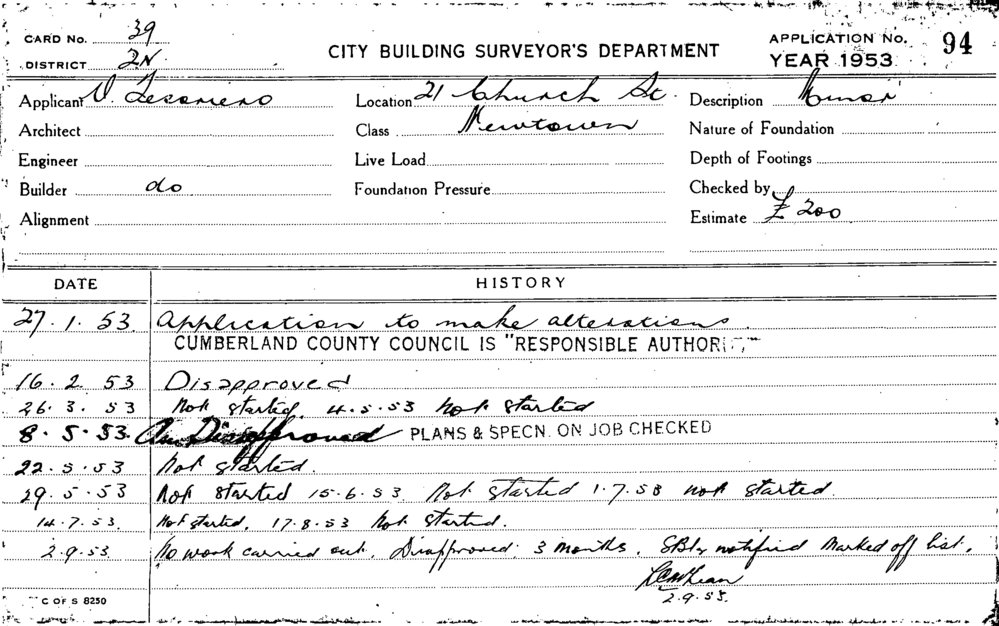 CARD No. 39
DISTRICT 2N
CITY BUILDING SURVEYOR'S DEPARTMENT
APPLICATION No. 94
YEAR 1953
Applicant V. Tesoriero Location 21 Church St. Description Minor
Architect Class Newtown Nature of Foundation
Engineer Live Load Depth of Footings
Builder do Foundation Pressure Checked by
Alignment Estimate £ 200
DATE HISTORY
27.1.53 Application to make alterations.
CUMBERLAND COUNTY COUNCIL IS "RESPONSIBLE AUTHORITY"
16.2.53 Disapproved
26.3.53 Not started. 4.5.53 Not started
8.5.53. Disapproved PLANS & SPECN. ON JOB CHECKED
22.5.53 Not started.
29.5.53 Not started 15.6.53 Not started 1.7.53 not started.
14.7.53. Not started. 17.8.53 Not started.
2.9.53 No work carried out. Disapproved 3 months. notified Marked off list.
2.9.53.
C OF S 8250